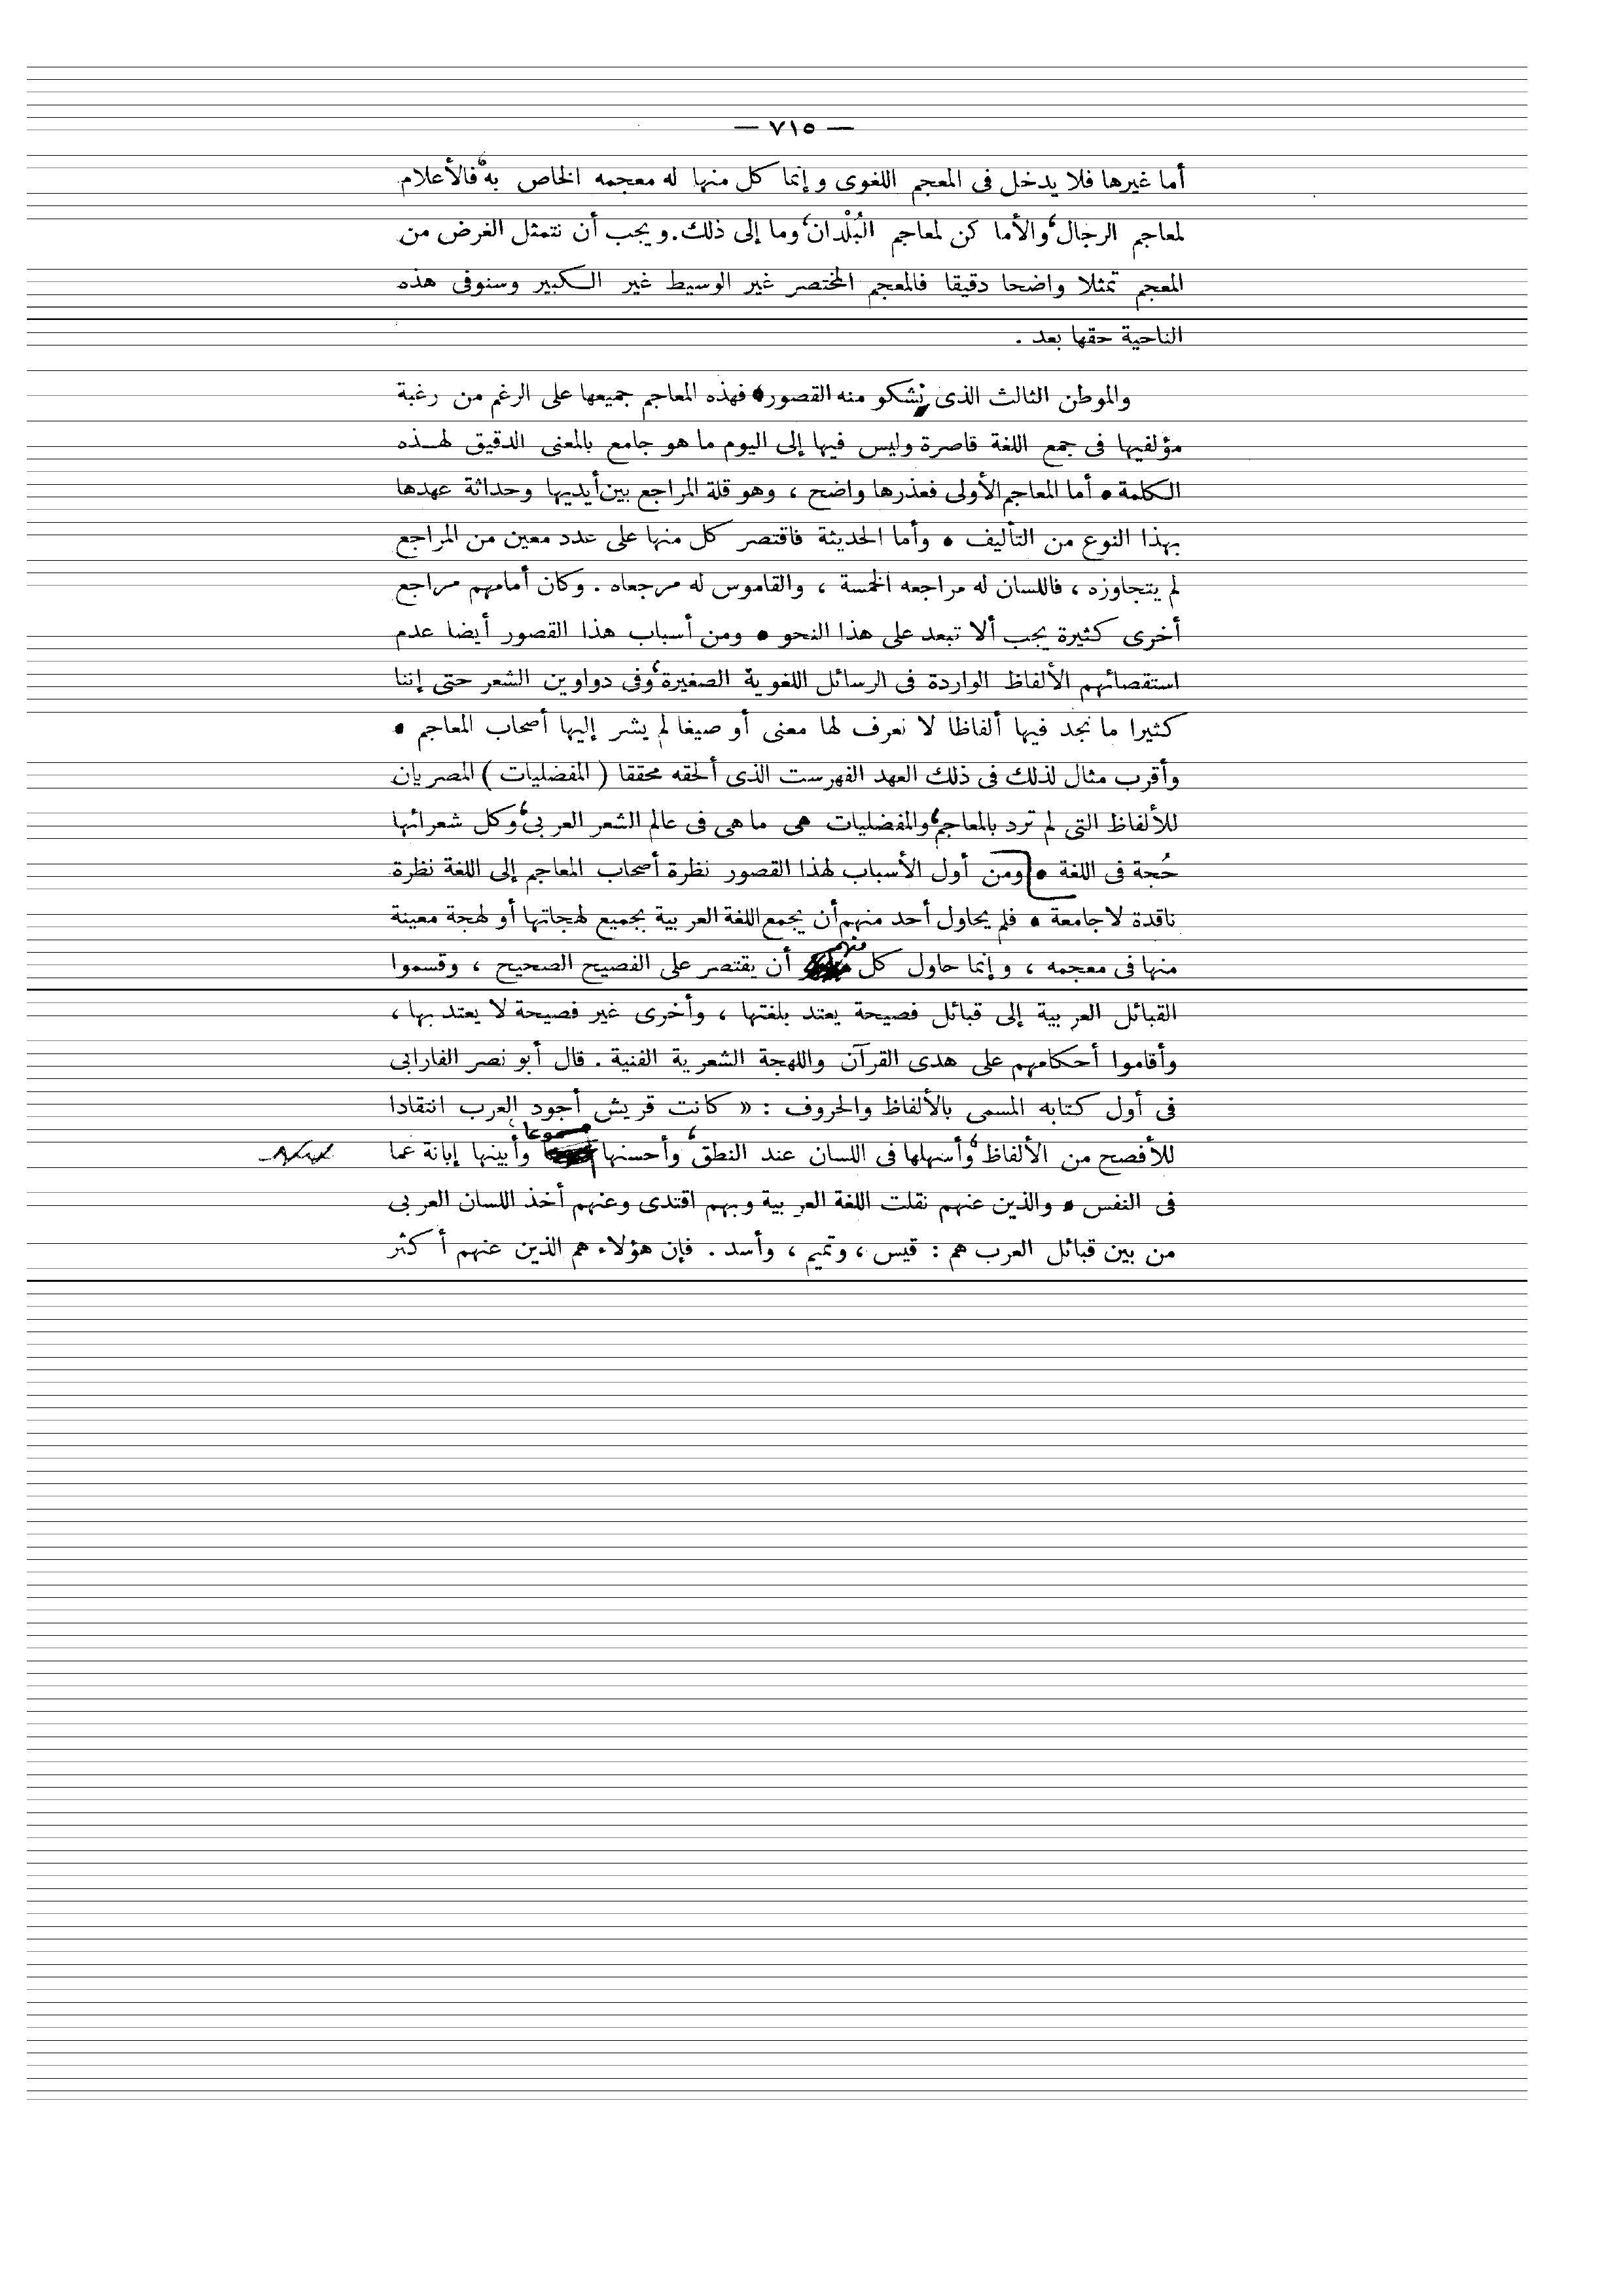 — ٧١٥ —
أما غيرها فلا يدخل فى المعجم اللغوى وإنما كل منها له معجمه الخاص به، فالأعلام
لمعاجم الرجال، والأماكن لمعاجم البُلْدان، وما إلى ذلك. ويجب أن نتمثل الغرض من
المعجم تمثلا واضحا دقيقا فالمعجم المختصر غير الوسيط غير الكبير وسنوفى هذه
الناحية حقها بعد .
والموطن الثالث الذى نشكو منه القصور. فهذه المعاجم جميعها على الرغم من رغبة
مؤلفيها فى جمع اللغة قاصرة وليس فيها إلى اليوم ما هو جامع بالمعنى الدقيق لهذه
الكلمة. أما المعاجم الأولى فعذرها واضح ، وهو قلة المراجع بين أيديها وحداثة عهدها
بهذا النوع من التأليف . وأما الحديثة فاقتصر كل منها على عدد معين من المراجع
لم يتجاوزه ، فاللسان له مراجعه الخمسة ، والقاموس له مرجعاه . وكان أمامهم مراجع
أخرى كثيرة يجب ألا تبعد على هذا النحو . ومن أسباب هذا القصور أيضا عدم
استقصائهم الألفاظ الواردة فى الرسائل اللغوية الصغيرة، وفى دواوين الشعر حتى إننا
كثيرا ما نجد فيها ألفاظا لا نعرف لها معنى أو صيغا لم يشر إليها أصحاب المعاجم .
وأقرب مثال لذلك فى ذلك العهد الفهرست الذى ألحقه محققا ( المفضليات ) المصريان
للألفاظ التى لم ترد بالمعاجم، والمفضليات هى ما هى فى عالم الشعر العربى، وكل شعرائها
حُجة فى اللغة . ومن أول الأسباب لهذا القصور نظرة أصحاب المعاجم إلى اللغة نظرة
ناقدة لا جامعة . فلم يحاول أحد منهم أن يجمع اللغة العربية بجميع لهجاتها أو لهجة معينة
منها فى معجمه ، وإنما حاول كل منهم أن يقتصر على الفصيح الصحيح ، وقسموا
القبائل العربية إلى قبائل فصيحة يعتد بلغتها ، وأخرى غير فصيحة لا يعتد بها ،
وأقاموا أحكامهم على هدى القرآن واللهجة الشعرية الفنية . قال أبو نصر الفارابى
فى أول كتابه المسمى بالألفاظ والحروف : « كانت قريش أجود العرب انتقادا
للأفصح من الألفاظ، وأسهلها فى اللسان عند النطق، وأحسنها مسموعا، وأبينها إبانة عما
فى النفس . والذين عنهم نقلت اللغة العربية وبهم اقتدى وعنهم أخذ اللسان العربى
من بين قبائل العرب هم : قيس ، وتميم ، وأسد . فإن هؤلاء هم الذين عنهم أكثر